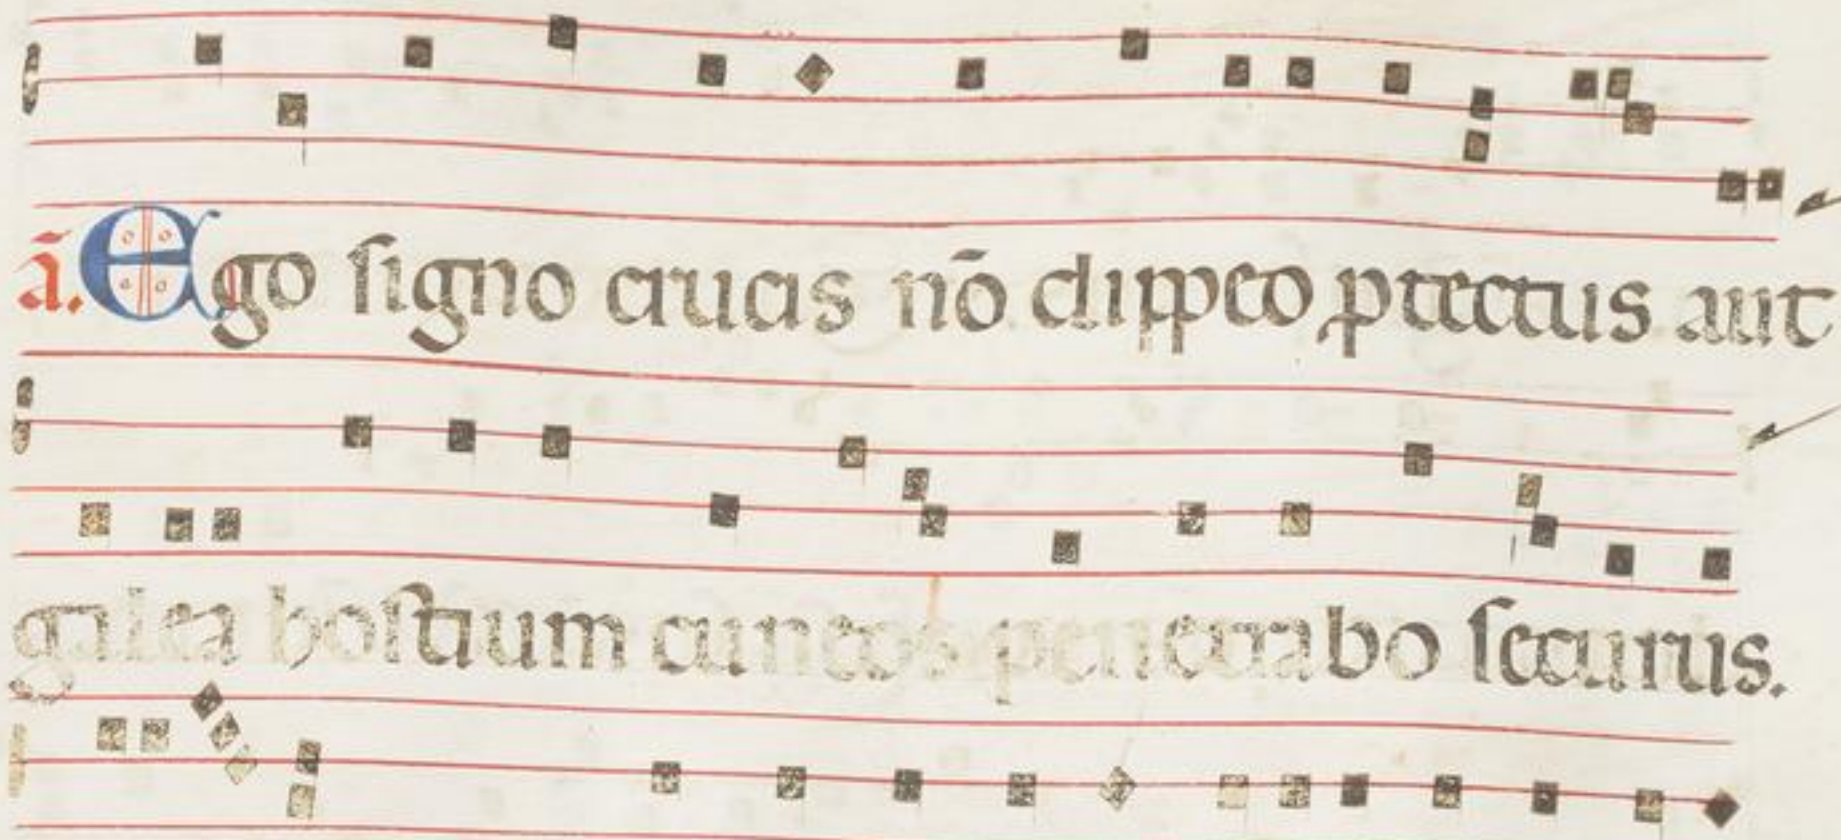 ā. Ego signo crucis nō clippeo ptectus aut
galea hostium cuneos penetrabo securus.